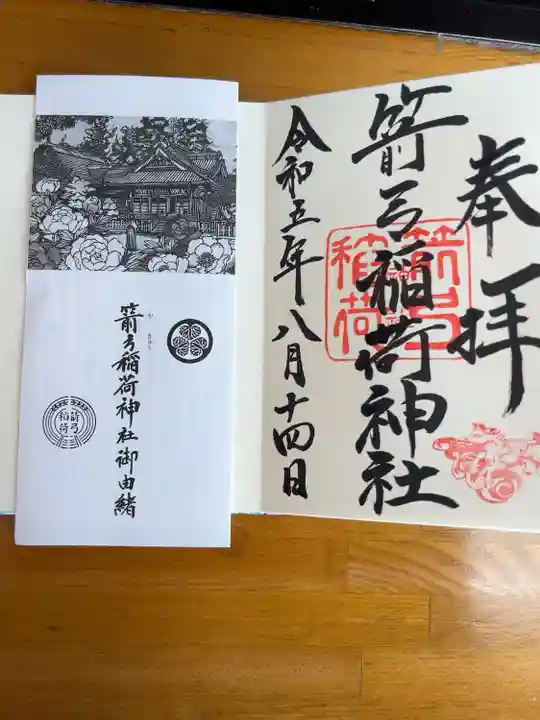 奉拝
箭弓稲荷神社
箭弓稲荷
令和五年八月十四日
箭弓稲荷神社御由緒
や きゅう
箭弓稲荷